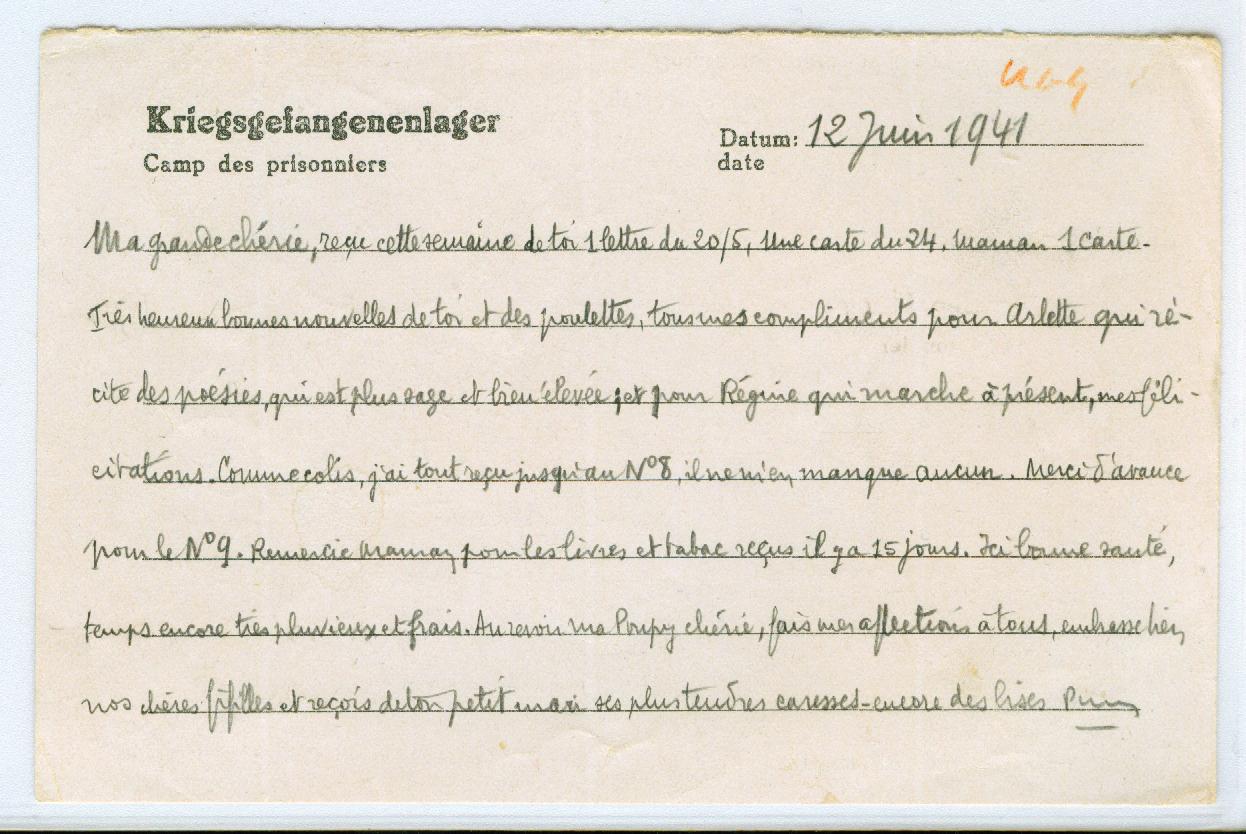 Kriegsgefangenenlager
Camp des prisonniers
Datum: 12 Juin 1941
date
Ma grande chérie, reçu cette semaine de toi 1 lettre du 20/5, une carte du 24. Maman 1 carte.
Très heureux bonnes nouvelles de toi et des poulettes, tous mes compliments pour Arlette qui ré-
cite des poésies, qui est plus sage et bien élevée, et pour Régine qui marche à présent, mes féli-
citations. Comme colis, j'ai tout reçu jusqu'au N°8, il ne m'en manque aucun. Merci d'avance
pour le N°9. Remercie Maman pour les livres et tabac reçus il y a 15 jours. Ici bonne santé,
temps encore très pluvieux et frais. Au revoir ma Poupy chérie, fais mes affections à tous, embrasse bien
nos chères fifilles et reçois de ton petit mari ses plus tendres caresses - encore des bises